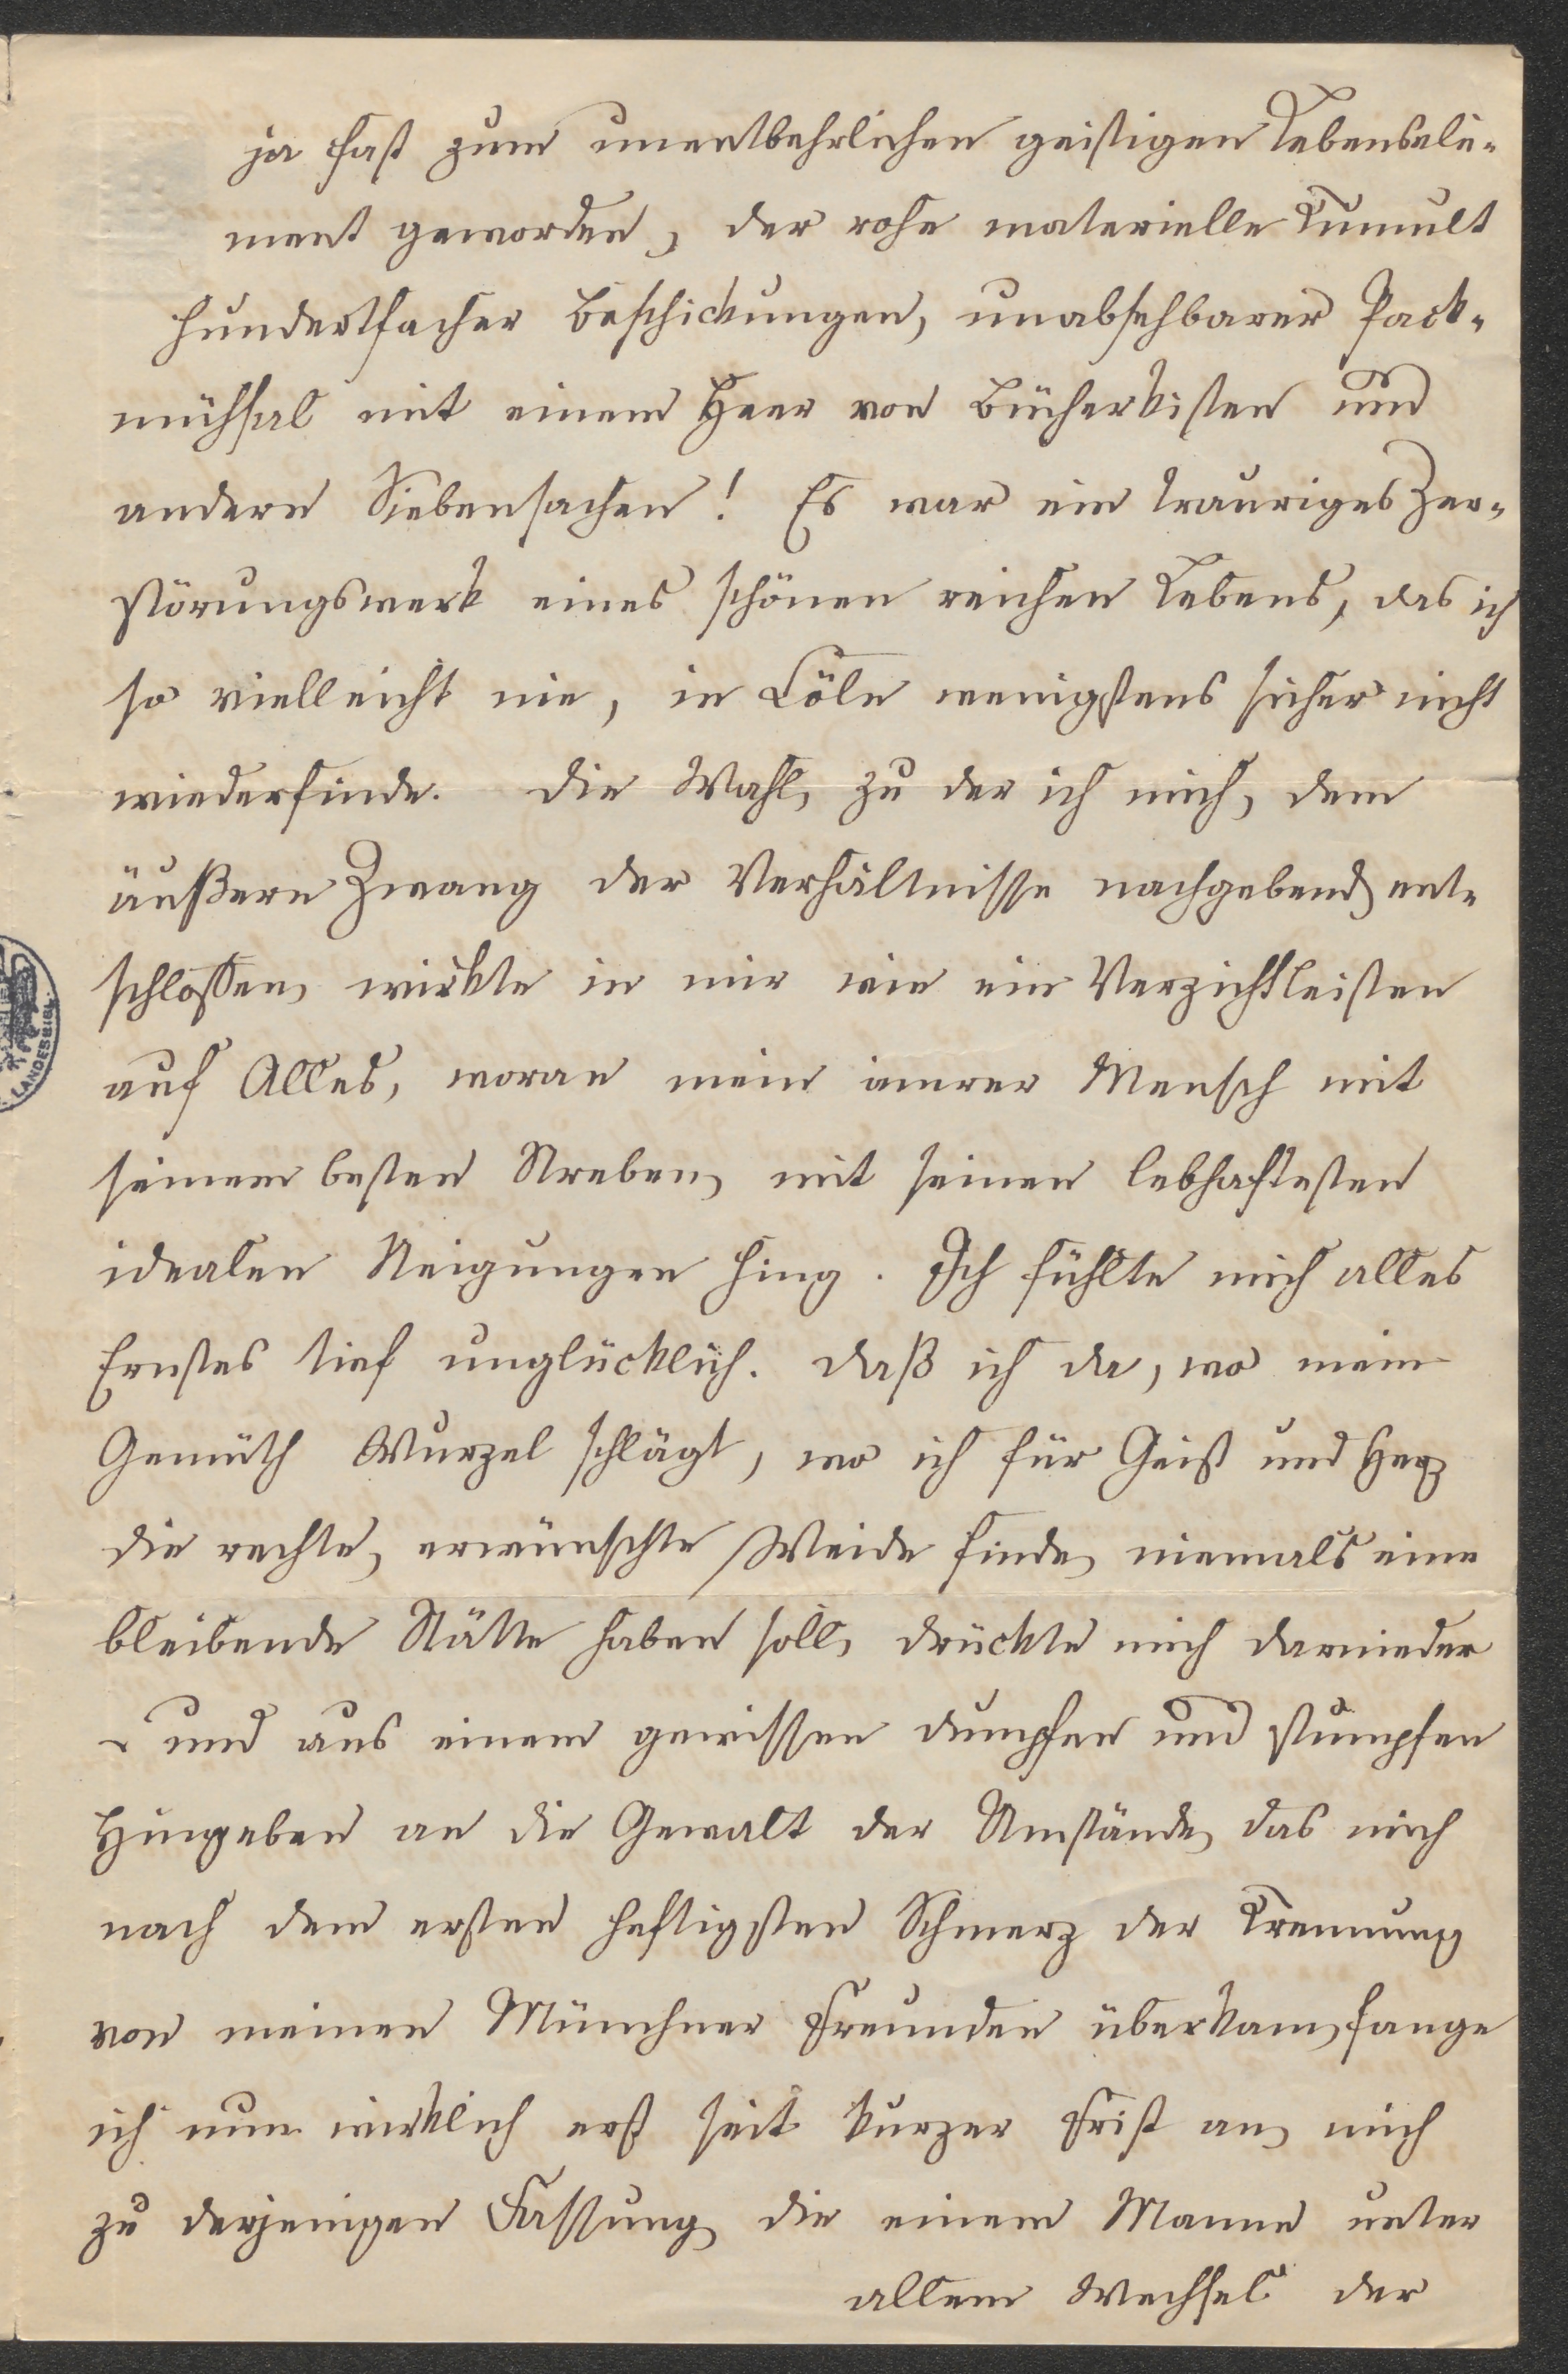 ja fast zum unentbehrlichen geistigen Lebensele-
ment geworden, der rohe materielle Tumult
hundertfacher Beschickungen, unabsehbarer Pack-
mühsal mit einem Heer von Bücherkisten und
andern Siebensachen! Es war ein trauriges Zer-
störungswerk eines schönen reichen Lebens, das ich
so vielleicht nie, in Cöln wenigstens sicher nicht
wiederfinde. Die Wahl, zu der ich mich, dem
äußern Zwang der Verhältnisse nachgebend, ent-
schlossen, wirkte in mir wie ein Verzichtleisten
auf Alles, woran mein innrer Mensch mit
seinem besten Streben, mit seinen lebhaftesten
idealen Neigungen hing. Ich fühlte mich alles
Ernstes tief unglücklich. Daß ich da, wo mein
Gemüth Wurzel schlägt, wo ich für Geist und Herz
die rechte, erwünschte Weide finde, niemals eine
bleibende Stätte haben soll, drückte mich darnieder
– und aus einem gewissen dumpfen und stumpfen
Hingeben an die Gewalt der Umstände, das mich
nach dem ersten heftigsten Schmerz der Trennung
von meinen Münchner Freunden überkam, fange
ich nun wirklich erst seit kurzer Frist an, mich
zu derjenigen Fassung, die einem Manne unter
allem Wechsel der
LANDESBIBL.